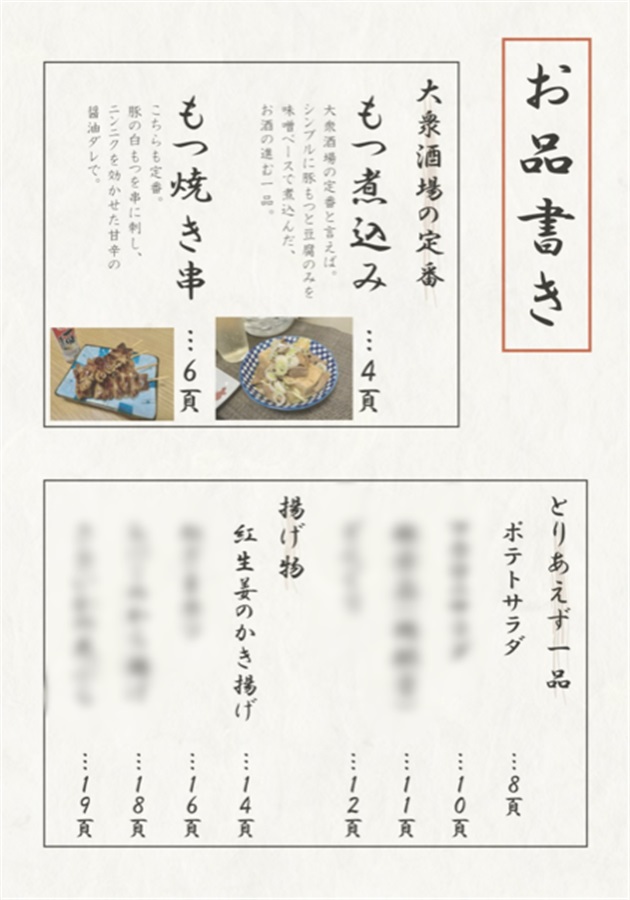 お品書き
大衆酒場の定番
もつ煮込み
大衆酒場の定番と言えば。
シンプルに豚もつと豆腐のみを
味噌ベースで煮込んだ、
お酒の進む一品。
…4頁
もつ焼き串
こちらも定番。
豚の白もつを串に刺し、
ニンニクを効かせた甘辛の
醤油ダレで。
…6頁
とりあえず一品
ポテトサラダ
…8頁
…10頁
…11頁
…12頁
揚げ物
紅生姜のかき揚げ
…14頁
…16頁
…18頁
…19頁